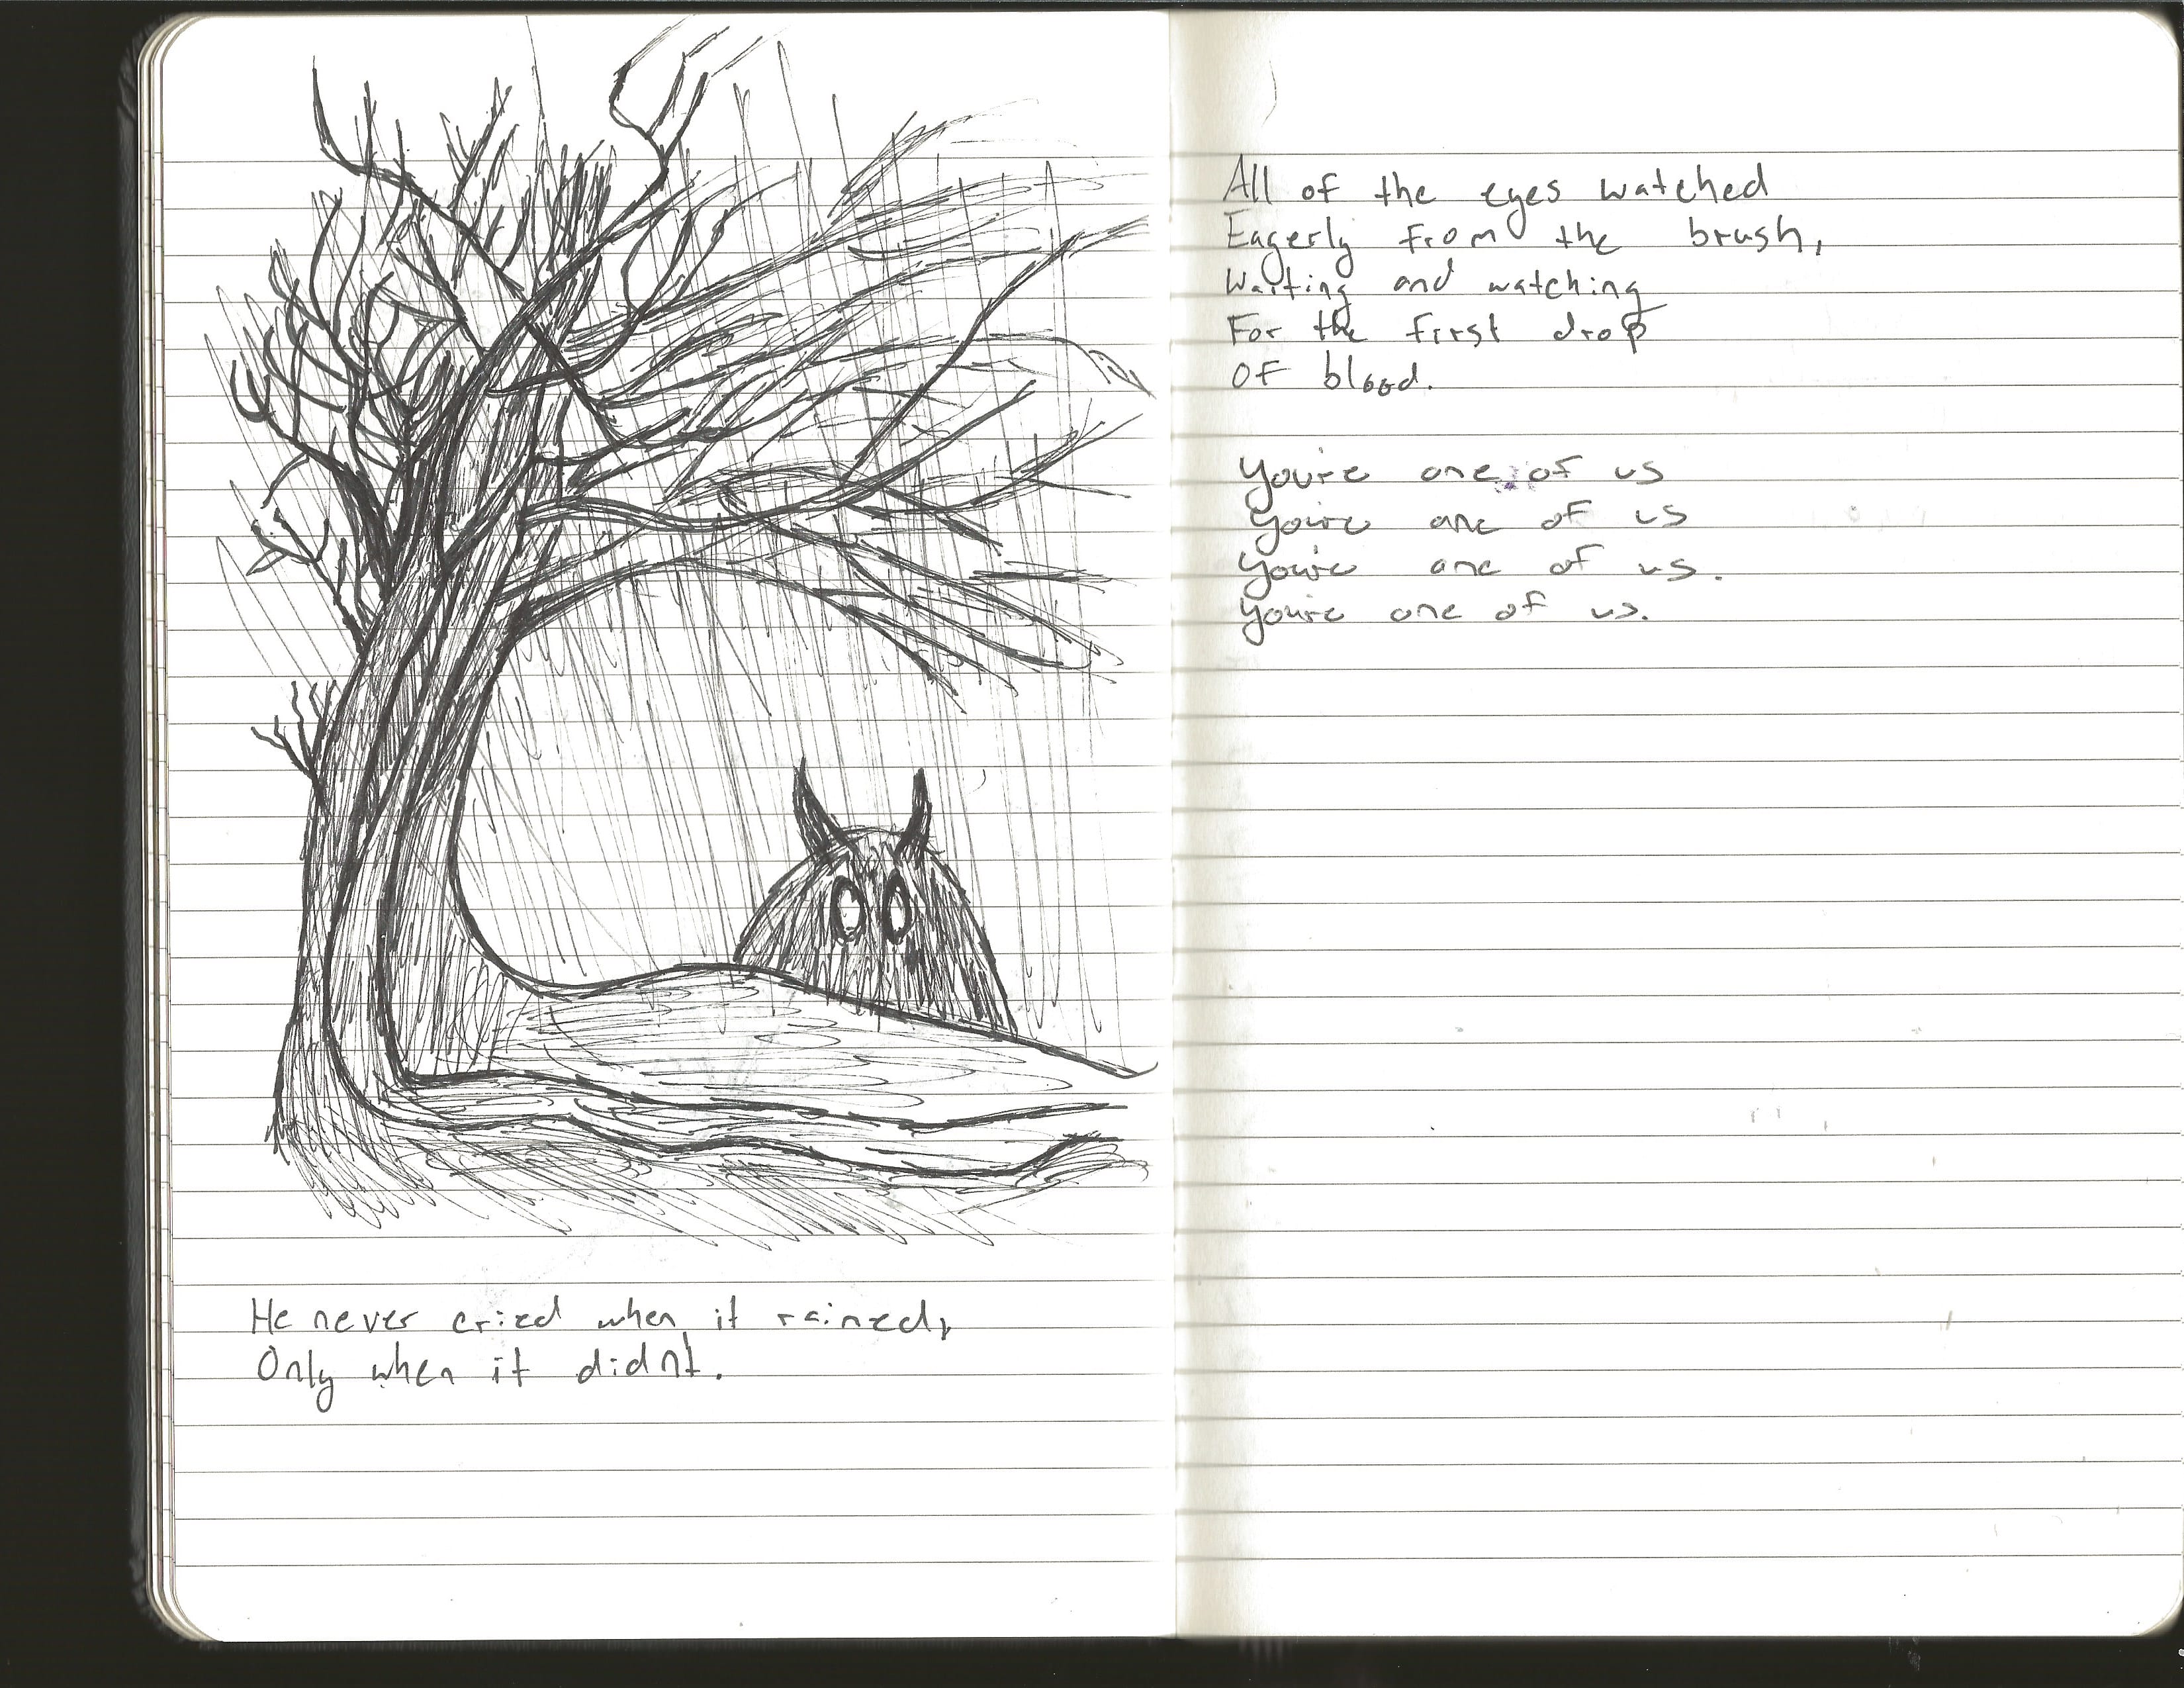 He never cried when it rained,
Only when it didnt.
All of the eyes watched
Eagerly from the brush,
Waiting and watching
For the first drop
OF blood.
You're one of us
You're one of us
You're one of us.
You're one of us.